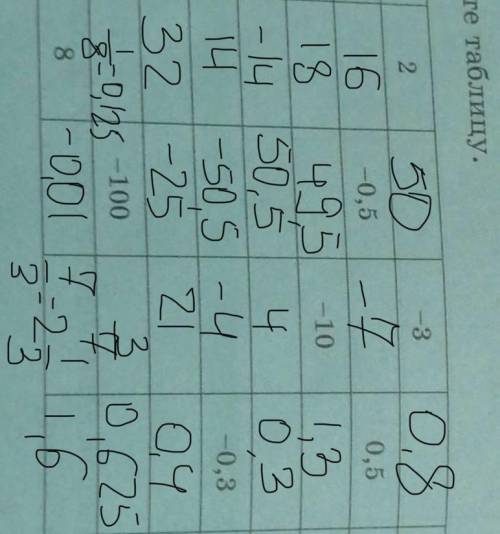 те таблицу.
2 50 -3 0,8
16 -0,5 -7 0,5
18 49,5 -10 1,3
-14 50,5 4 0,3
14 -50,5 -4 -0,3
32 -25 21 0,4
1/8=0,125 -100 3/7 0,625
8 -0,01 7/3=2 1/3 1,6